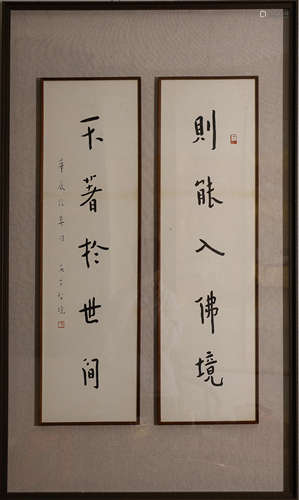 則能入佛境
不著於世间